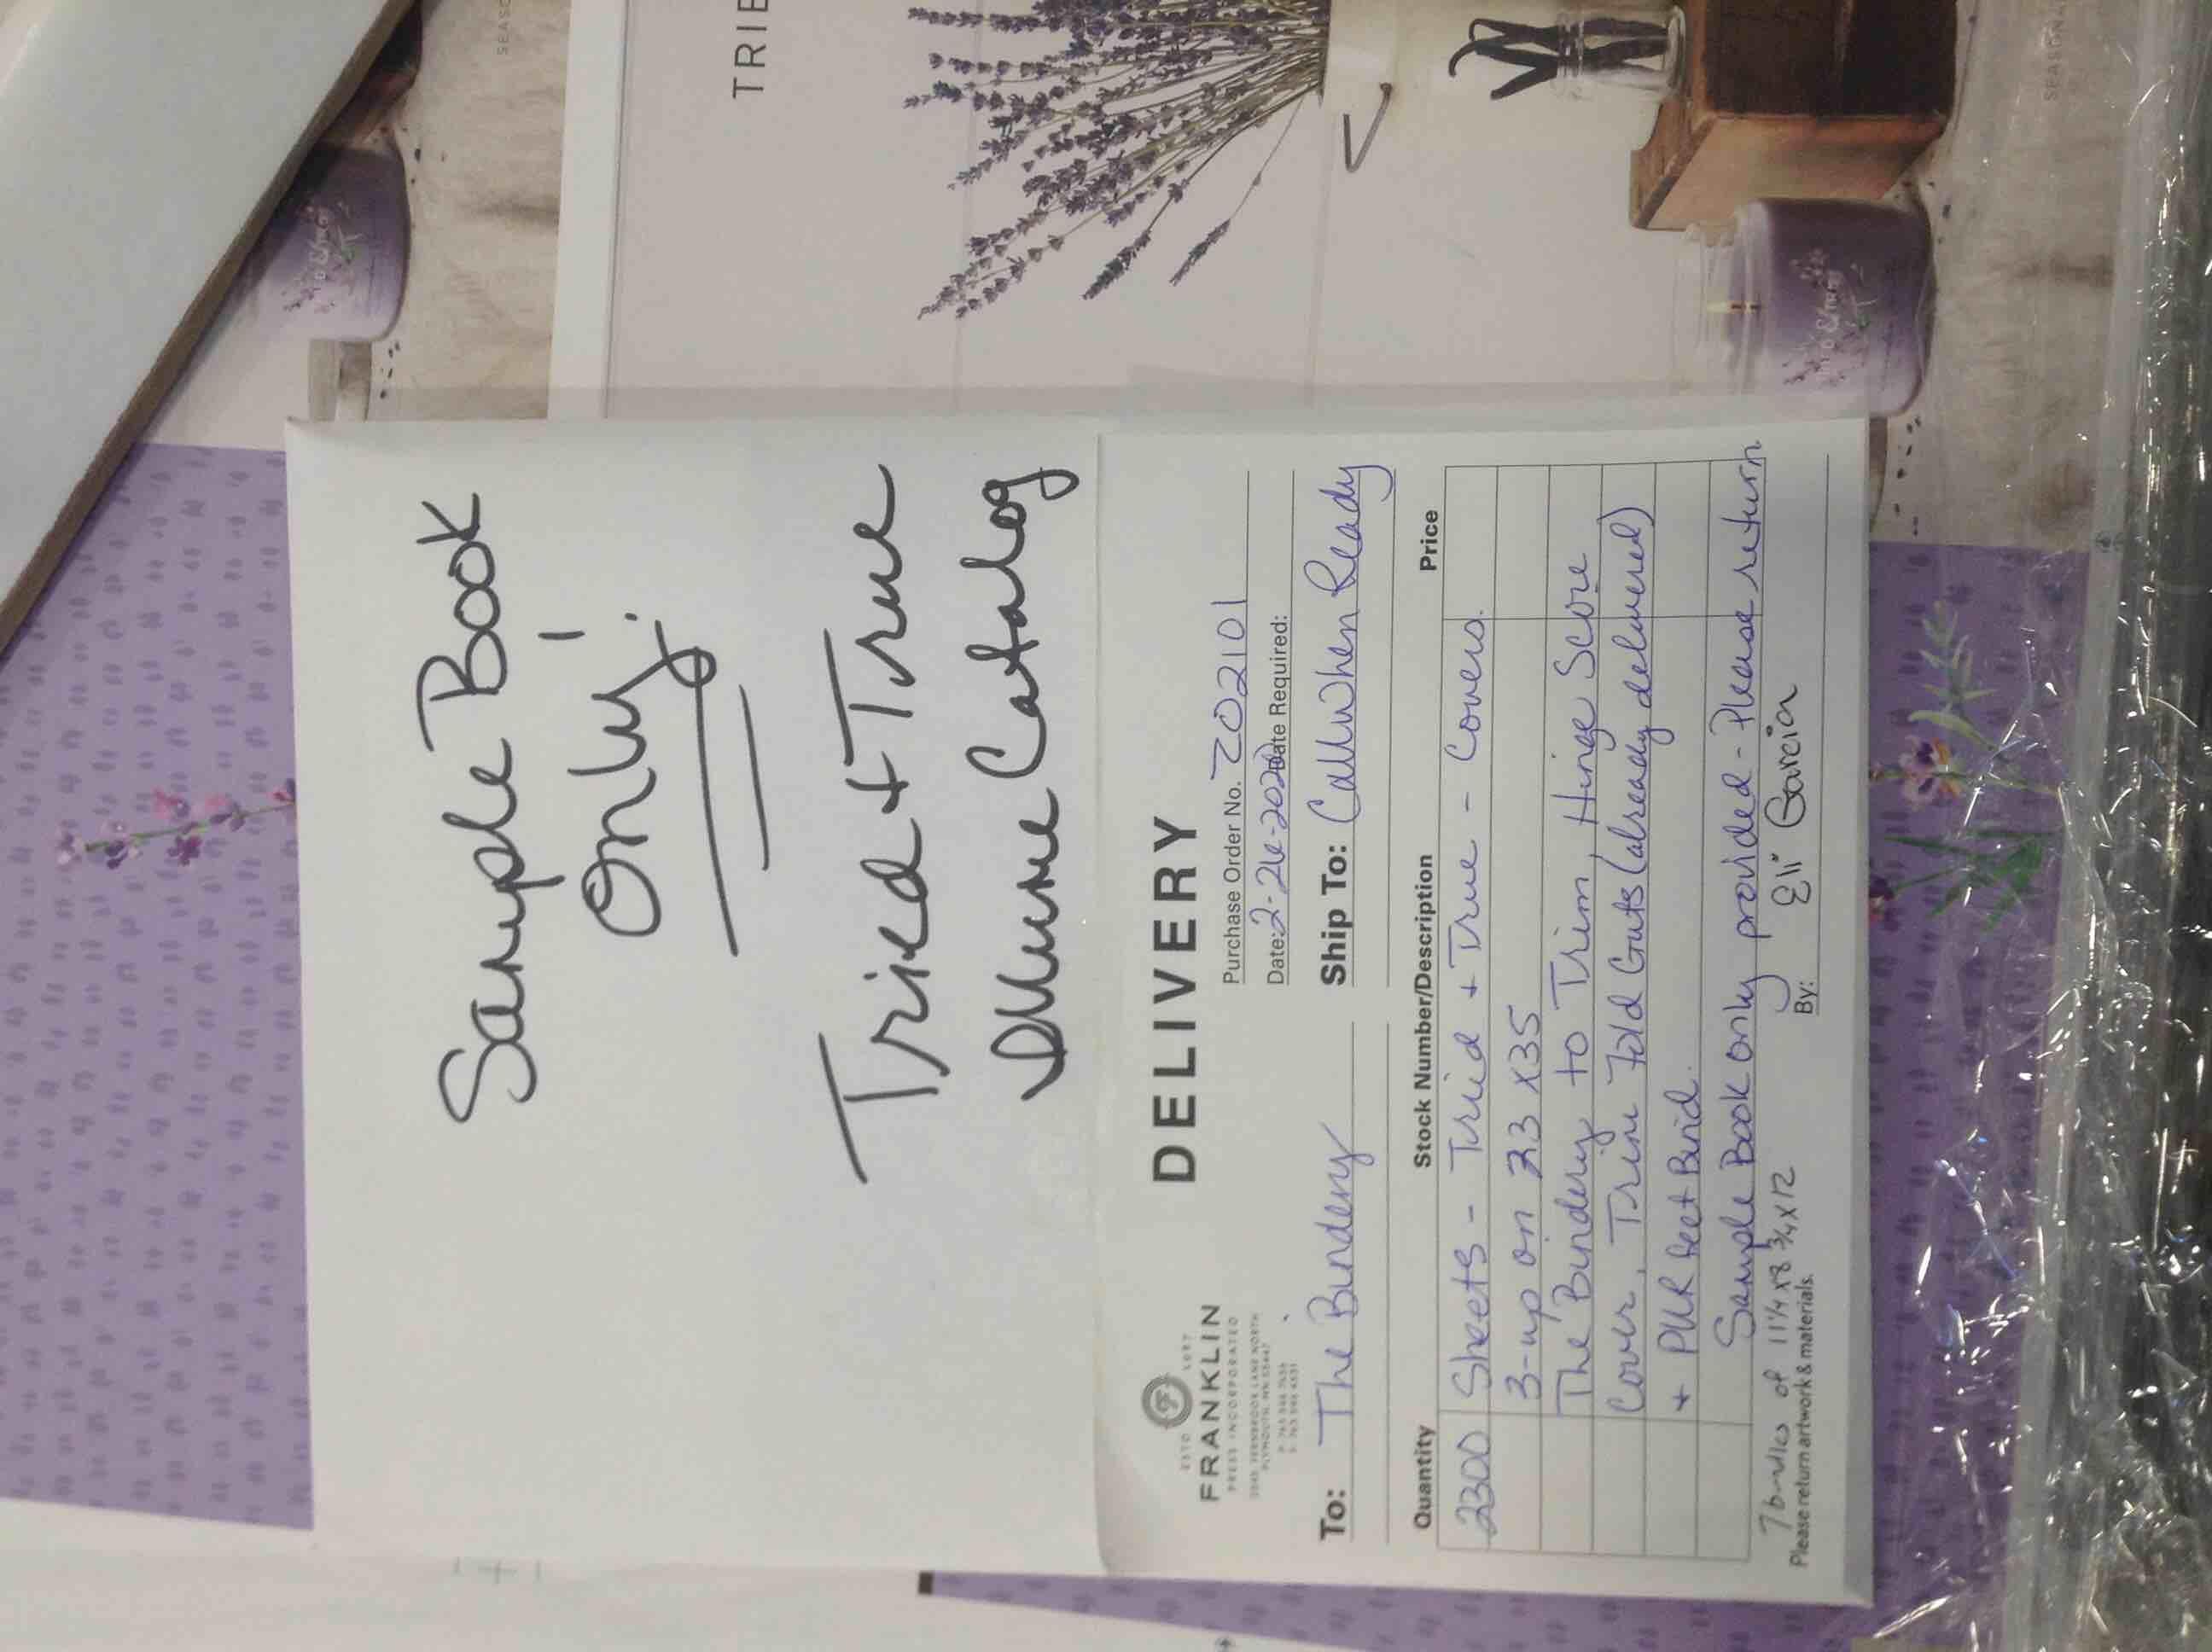 Sample Book
Only!
Tried + True
Catalog
DELIVERY
ESTD 1887
FRANKLIN
PRESS INCORPORATED
Purchase Order No. 202101
Date: 2-26-2020 Date Required:
To: The Bindery
Ship To: Call When Ready
Quantity Stock Number/Description Price
2300 Sheets - Tried + True - Covers.
3-up on 23 x 35
The Bindery to Trim, Hinge Score
Cover, Trim Fold Guts (already delivered)
+ PUR Perf Bind.
Sample Book only provided - Please return
7 bundles of 11 1/4 x 8 3/4 x 12
Please return artwork & materials.
By: Eli Garcia
TRIE
SEAS
SEASONA